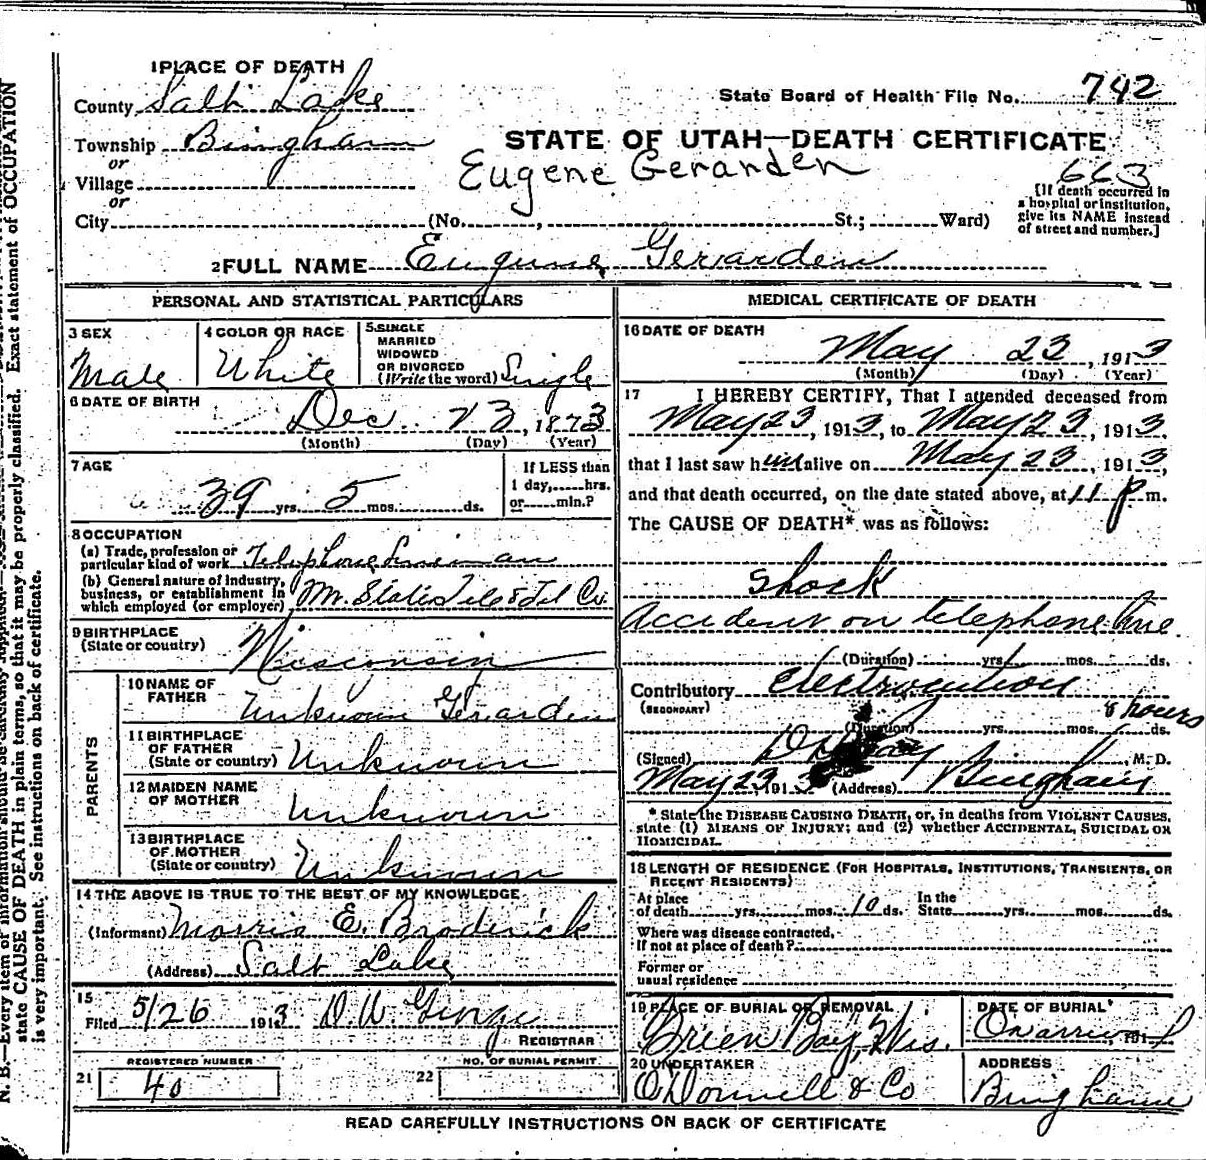 1 PLACE OF DEATH
County Salt Lake
State Board of Health File No. 742
Township Bingham
STATE OF UTAH—DEATH CERTIFICATE
or
Village
Eugene Gerarden
663
or
[If death occurred in
a hospital or institution,
give its NAME instead
of street and number.]
City (No. , St.; Ward)
2 FULL NAME Eugune Gerarden
PERSONAL AND STATISTICAL PARTICULARS
3 SEX
Male
4 COLOR OR RACE
White
5 SINGLE
MARRIED
WIDOWED
OR DIVORCED
(Write the word) Single
6 DATE OF BIRTH
Dec. 23, 1873
(Month) (Day) (Year)
7 AGE
39 yrs. 5 mos. ds.
If LESS than
1 day, hrs.
or min.?
8 OCCUPATION
(a) Trade, profession or
particular kind of work Telephone Lineman
(b) General nature of industry,
business, or establishment in
which employed (or employer) Mt. States Tele & Tel Co.
9 BIRTHPLACE
(State or country) Wisconsin
PARENTS
10 NAME OF
FATHER Unknown Gerarden
11 BIRTHPLACE
OF FATHER
(State or country) Unknown
12 MAIDEN NAME
OF MOTHER Unknown
13 BIRTHPLACE
OF MOTHER
(State or country) Unknown
14 THE ABOVE IS TRUE TO THE BEST OF MY KNOWLEDGE
(Informant) Morris E. Broderick
(Address) Salt Lake
15
Filed 5/26 1913 D. W. George
REGISTRAR
REGISTERED NUMBER
21 40
NO. OF BURIAL PERMIT
22
MEDICAL CERTIFICATE OF DEATH
16 DATE OF DEATH
May 23, 1913
(Month) (Day) (Year)
17 I HEREBY CERTIFY, That I attended deceased from
May 23, 1913, to May 23, 1913,
that I last saw him alive on May 23, 1913,
and that death occurred, on the date stated above, at 11 p m.
The CAUSE OF DEATH* was as follows:
Shock
Accident on telephone line
(Duration) yrs. mos. ds.
Contributory Electrocution
(SECONDARY)
8 hours
(Duration) yrs. mos. ds.
(Signed) , M. D.
May 23, 1913 (Address) Bingham
* State the DISEASE CAUSING DEATH, or, in deaths from VIOLENT CAUSES,
state (1) MEANS OF INJURY; and (2) whether ACCIDENTAL, SUICIDAL OR
HOMICIDAL.
18 LENGTH OF RESIDENCE (FOR HOSPITALS, INSTITUTIONS, TRANSIENTS, OR
RECENT RESIDENTS)
At place
of death yrs. mos. 10 ds.
In the
State yrs. mos. ds.
Where was disease contracted,
If not at place of death?
Former or
usual residence
19 PLACE OF BURIAL OR REMOVAL
Green Bay, Wis.
DATE OF BURIAL
On arrival, 191
20 UNDERTAKER
O'Donnell & Co
ADDRESS
Bingham
READ CAREFULLY INSTRUCTIONS ON BACK OF CERTIFICATE
state CAUSE OF DEATH in plain terms, so that it may be properly classified. Exact statement of OCCUPATION
is very important. See instructions on back of certificate.